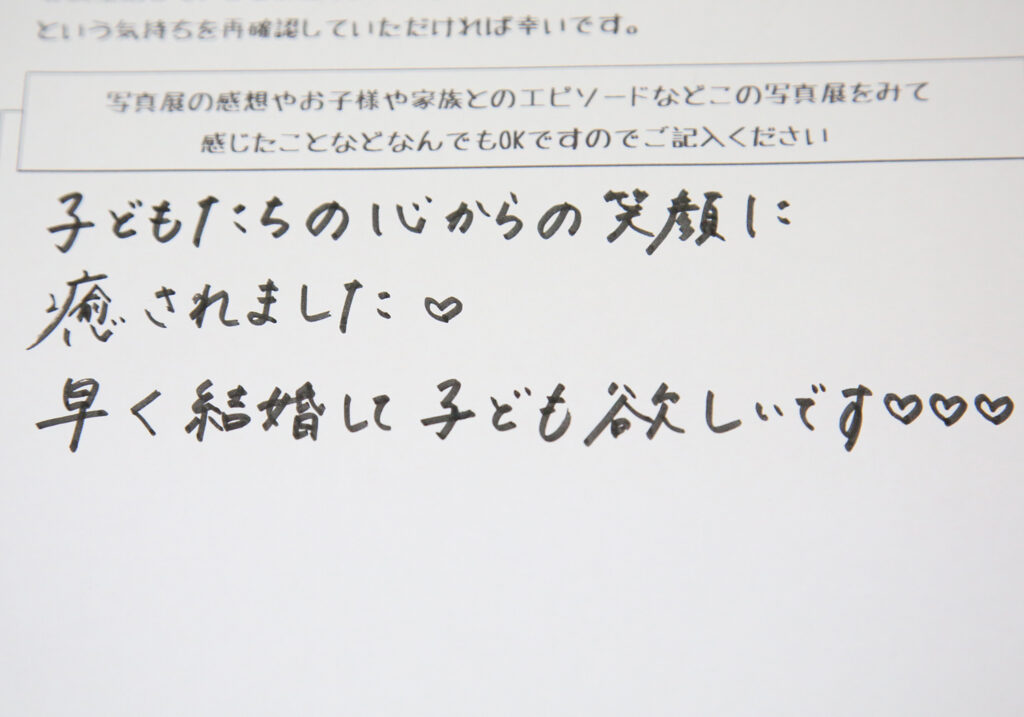 という気持ちを再確認していただければ幸いです。
写真展の感想やお子様や家族とのエピソードなどこの写真展をみて
感じたことなどなんでもOKですのでご記入ください
子どもたちの心からの笑顔に
癒されました♡
早く結婚して子ども欲しいです♡♡♡